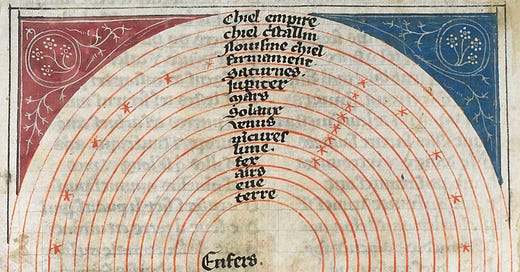 chiel empirē
chiel cristallin
nouisme chiel
firmament
saturnes.
Jupiter
mars
Solaux
venus
mcures
lune.
fex
airs
eue
terre
Enfers.